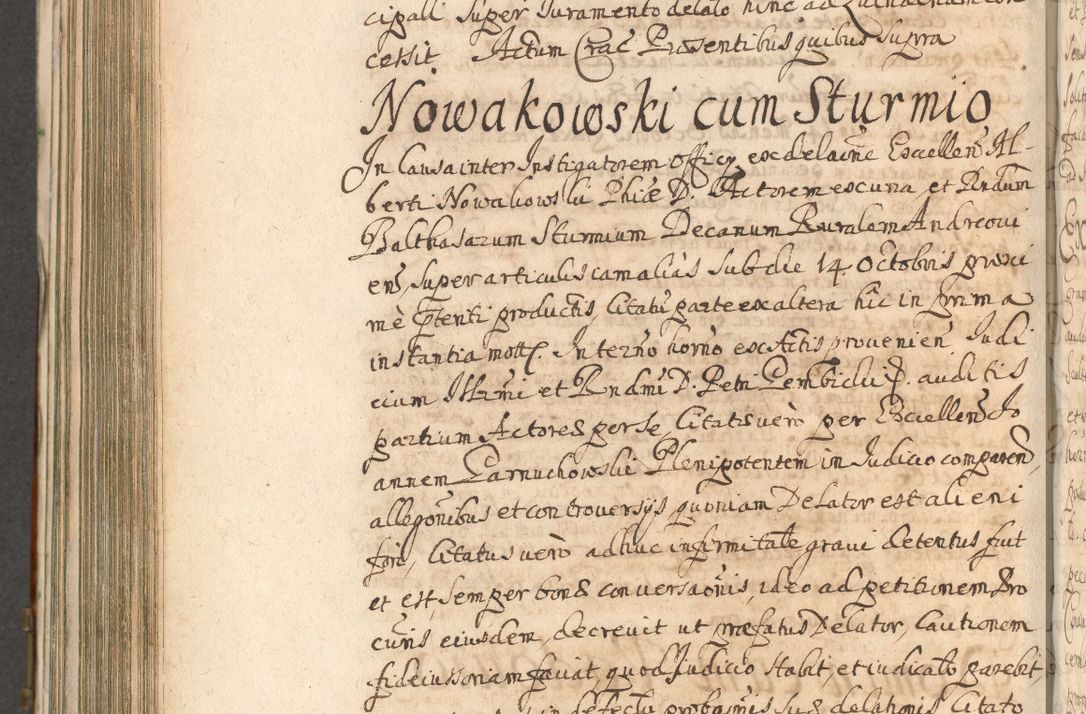 cipali super Juramento delato hinc ad
cessit Actum Crac Præsentibus quibus supra
Nowakowski cum Sturmio
In Causa inter Instigatorem Officÿ ex delaōne Excellen̄ Al-
berti Nowakowski Phiæ D. Actorem ex una et Rndum
Balthasarum Sturmium Decanum Ruralem Andreovi
en̄, super articulis camalias sub die 14. Octobris proxi
me p̄tenti productis, Citatū parte ex altera hic in prima
instantia mott. In terno horno ex Actis provenien̄ Judi
cium Illrmi et Rndmi D. Petri Gembicki P. auditis
partium Actores per se, Citatis vero per Excellen̄ Jo
annem Garnuchowski Plenipotentem in Judicio comparen̄,
allegonibus et controversijs, quoniam Delator est alieni
fori, Citatus vero adhuc infirmitate gravi detentus fuit
et est semper bonæ conversaōnis, ideo ad petitionem Pro
curis eiusdem, decrevit ut præfatus Delator, Cautionem
fideiussoriam faciat, quod Judicio stabit, et iudicato parebit,
in defectu probaōnis suæ delationis Citato